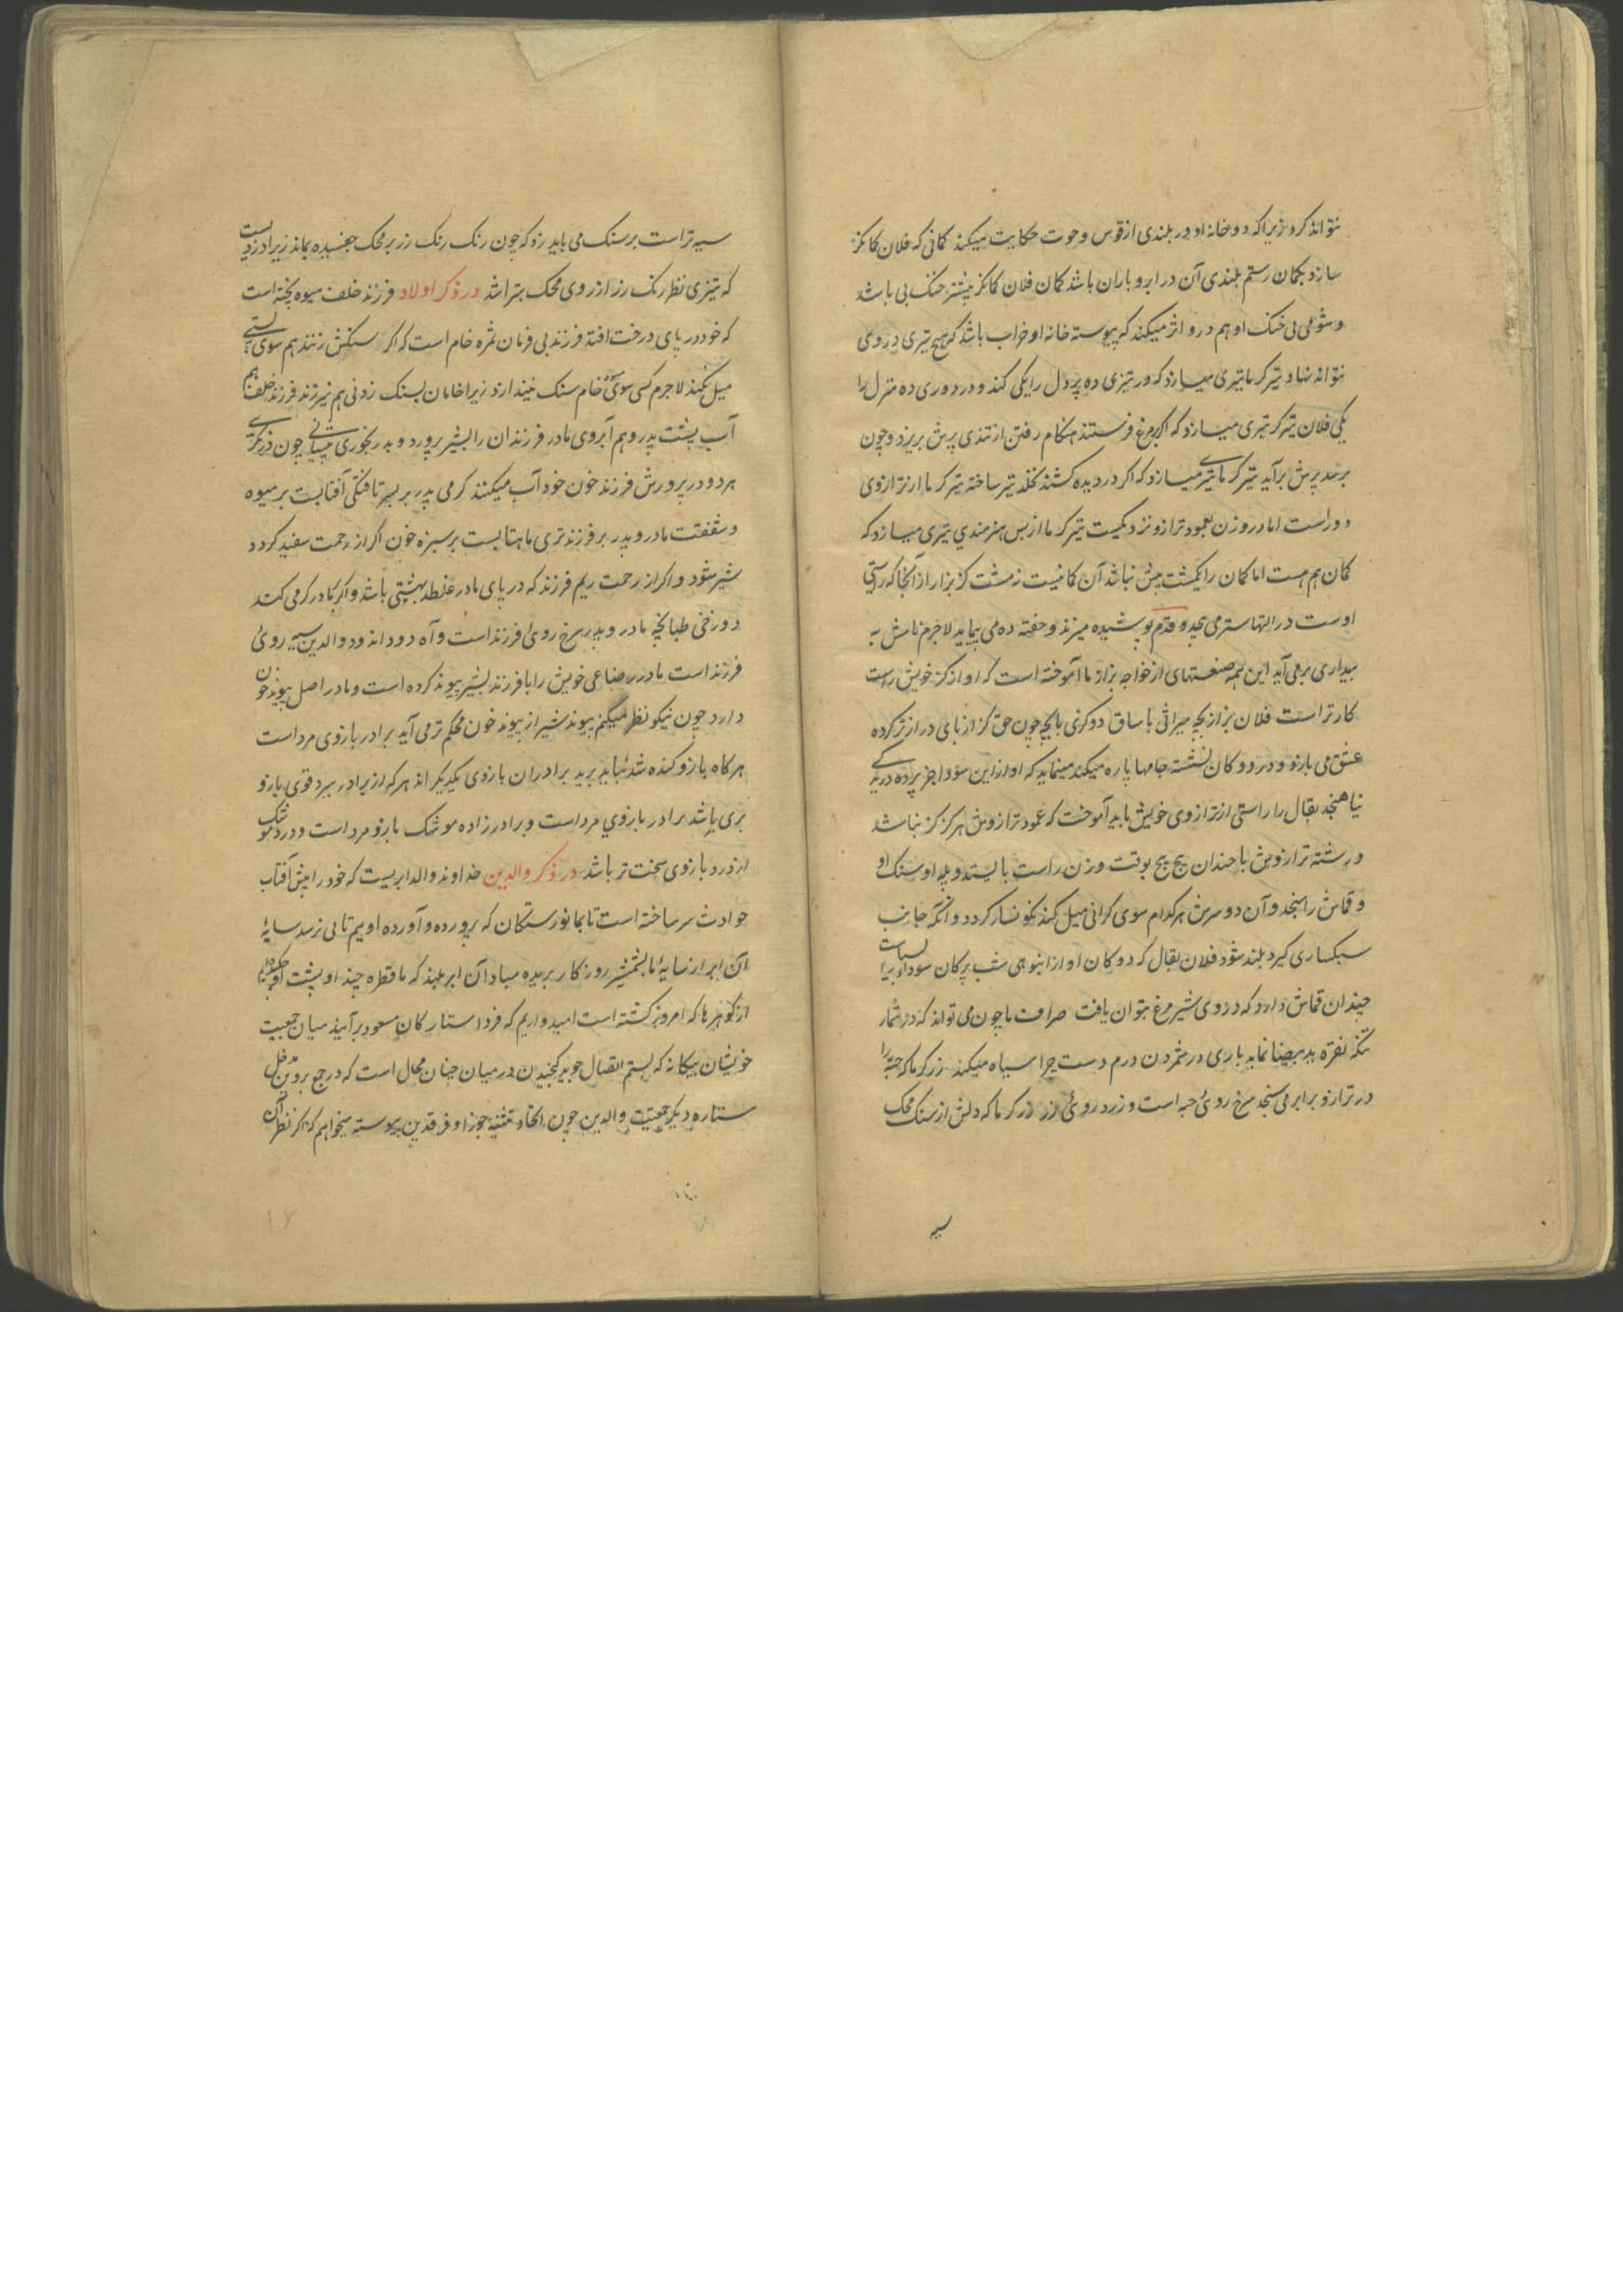 نتواند کرد زیراکه دوخانه او در بلندی از قوس و حوت حکایت میکند کمانی که فلان کمانکر
سازد بکمان رستم بلندی آن در ابر و باران باشد کمان فلان کمانکر بیشتر خنک بی باشد
و شومی بی خنک او هم درو اثر میکند که پیوسته خانه او خراب باشد که هیچ تیری در وی
نتواند نهاد تیرکر ما تیری میسازد که در تیزی ده پر دل را یکی کند و در دوری ده منزل را
یکی فلان تیرکر تیری میسازد که اکر بر مرغ فرستند هنکام رفتن از تندی پرش بریزد و چون
برحد پرش برآید تیرکر ما تیری میسازد که اکر در دیده کشند نخلد تیر ساخته تیرکر ما از ترازوی
دور است اما در وزن بعمود ترازو نزدیکست تیرکر ما از بس هنرمندی تیری میسازد که
کمان هم هست اما کمان را یکمشت بیش نباشد آن کمانیست نه مشت کز بزاز از آنجا که راستی
اوست در التها ستر می و قدم پوشیده میزند و خفته ده می پیماید لاجرم نامش به
بیداری برمی آید این همه صنعتهای از خواجه بزاز ما آموخته است که او از کز خویش راست
کارتر است فلان بزاز بچه میراثی با ساق دوکزی پایچه چون حق کز از پای دراز تر کرده
عشق می بازد و در دوکان نشسته جامها پاره میکند مینماید که او را از این سودا جز پرده دریدگی
نیاهنجد بقال را راستی از ترازوی خویش باید آموخت که عمود ترازوش هرکز کز نباشد
و رشته ترازوش با چندان پیچ پیچ بوقت وزن راست بایستد و پله او سنک او
و قماش را سنجد و آن دو سرش هرکدام سوی کرانی میل کند نکونسار کردد و آنکه جانب
سبکساری کیرد بلند شود فلان بقال که دوکان او از انبوهی شب پرکان سودا
چندان قماش دارد که در وی شیر مرغ بتوان یافت صراف ما چون می تواند که در شمار
تنکه نقره ید بیضا نماید باری در شمردن درم دست چرا سیاه میکند زرکر ما که حبه را
در ترازو برابر می سنجد سرخ روی حبه است و زرد روی زر زرکر ما که دلش از سنک محک
سیه
سیه تر است بر سنک می باید زد که چون رنک رنک زر بر محک چفسیده بماند زیرا دزدیست
که تیزی نظر رنک زر از روی محک بتراشد در ذکر اولاد فرزند خلف میوه پخته است
که خود در پای درخت افتد فرزند بی فرمان ثمره خام است که اکر سنکش زنند هم سوی پستی
میل نکند لاجرم کسی سوی میوه خام سنک نیندازد زیرا خامان بسنک زدنی هم نیرزند فرزند خلف هم
آب پشت پدر و هم آبروی مادر فرزندان را بشیر پرورد و پدر بخوری پیشانی چون
هر دو در پرورش فرزند خون خود آب میکنند کرمی پدر بر پسر تافتکی آفتابست بر میوه
و شفقت مادر و پدر بر فرزند تری ماهتابست بر سبزه خون اکر از رحمت سفید کردد
شیر شود و اکر از رحمت ریم فرزند که در پای مادر غلطد بهشتی باشد و اکر بمادر کرمی کند
دوزخی طبانچه مادر و پدر سرخ روی فرزند است و آه دود اندود والدین سیه روی
فرزند است مادر رضاعی خویش را با فرزند بشیر پیوند کرده است و مادر اصل پیوند خون
دارد چون نیکو نظر میکنم پیوند شیر از پیوند خون محکم تر می آید برادر بازوی مرد است
هرکاه بازو کنده شد نباید برید برادران بازوی یکدیکر اند هر که از برادر ببرد قوی بازو
بری باشد برادر بازوی مرد است و برادرزاده موشک بازو مرد است و درد موشک
از درد بازوی سخت تر باشد در ذکر والدین خداوند والد ابریست که خود را پیش آفتاب
حوادث سر ساخته است تا بما نورستکان که پرورده و آورده اویم تابی نرسد سایهٔ
آن ابر از سایهٔ ما بشمشیر روزکار بریده مباد آن ابر بلند که ما قطره چند او پشت او
از کوهرها که امروز کشته است امیدواریم که فردا ستارکان مسعود برآیند میان جمعیت
خویشان بیکانه که بستم اتصال جوید کنجیدن در میان چنان محال است که در جمع پروین مدخل
ستاره دیکر جمعیت والدین چون اتحاد تثنیه جوزا و فرقدین پیوسته میخواهم که اکر نظر آن
۱۶